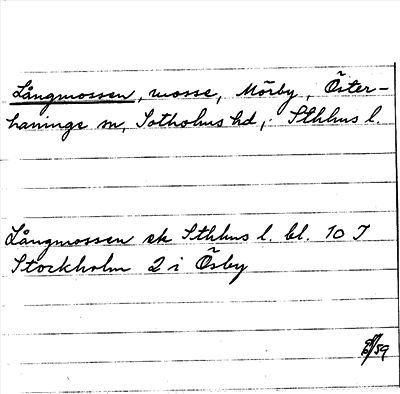 Långmossen, mosse, Mörby, Öster-
haninge sn, Sotholms hd, Sthlms l.
Långmossen ek Sthlms l. bl. 10 I
Stockholm 2 i Ösby
59